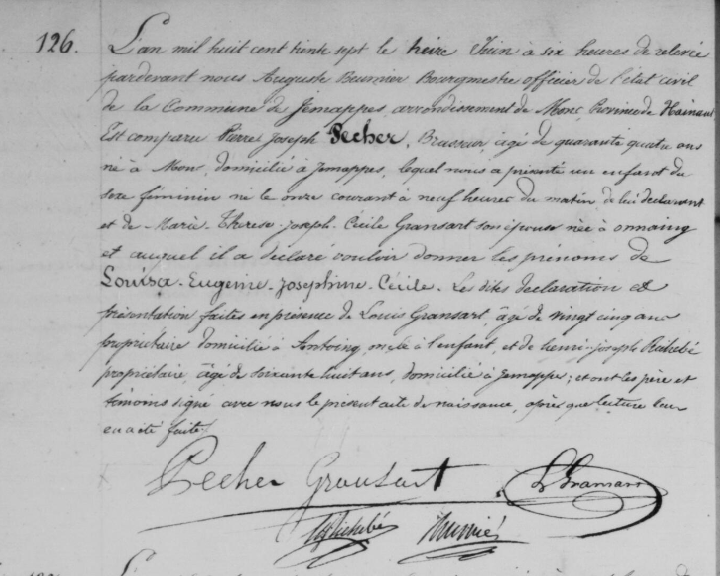 126.
L'an mil huit cent trente sept le treize Juin à six heures de relevée
pardevant nous Auguste Bourgmestre officier de l'état civil
de la Commune de Jemappes, arrondissement de Mons, Province de Hainaut
Est comparu Pierre Joseph Pecher, Brasseur, agé de quarante quatre ans
né à Mons, domicilié à Jemappes, lequel nous a présenté un enfant du
sexe féminin né le onze courant à neuf heures du matin, de lui déclarant
et de Marie-Therese-Joseph-Cécile Gransart son épouse née à onnaing
et auquel il a déclaré vouloir donner les prénoms de
Louisa-Eugenie-Josephine-Cécile. Les dites déclaration et
présentation faites en présence de Louis Gransart, âgé de vingt cinq ans
propriétaire domicilié à Antoing, à l'enfant, et de henri-Joseph Richebé
propriétaire, âgé de soixante huit ans, domicilié à Jemappes; et ont les père et
témoins signé avec nous le présent acte de naissance, après que lecture leur
en a été faite.
Pecher Gransart
L Gransart
Richebé